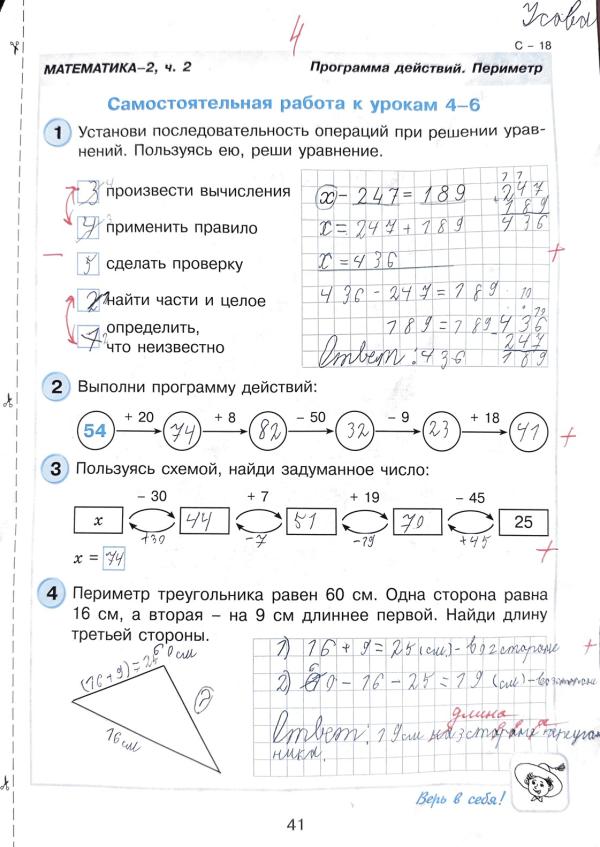 Усова
4
С – 18
МАТЕМАТИКА–2, ч. 2 Программа действий. Периметр
Самостоятельная работа к урокам 4–6
1 Установи последовательность операций при решении урав-
нений. Пользуясь ею, реши уравнение.
3 4 произвести вычисления
4 3 применить правило
5 сделать проверку
2 найти части и целое
1 2 определить,
что неизвестно
x - 247 = 189
x = 247 + 189
x = 436
436 - 247 = 189
189 = 189
Ответ: 436
247
189
436
436
247
189
2 Выполни программу действий:
+ 20 + 8 – 50 – 9 + 18
54 74 82 32 23 41
3 Пользуясь схемой, найди задуманное число:
– 30 + 7 + 19 – 45
x 44 51 70 25
+30 -7 -19 +45
x = 74
4 Периметр треугольника равен 60 см. Одна сторона равна
16 см, а вторая – на 9 см длиннее первой. Найди длину
третьей стороны.
60 см
(16+9)=25
?
16 см
1) 16 + 9 = 25 (см) -
2) 60 - 16 - 25 = 19 (см) -
длина
Ответ: 19 см
ника.
Верь в себя!
41